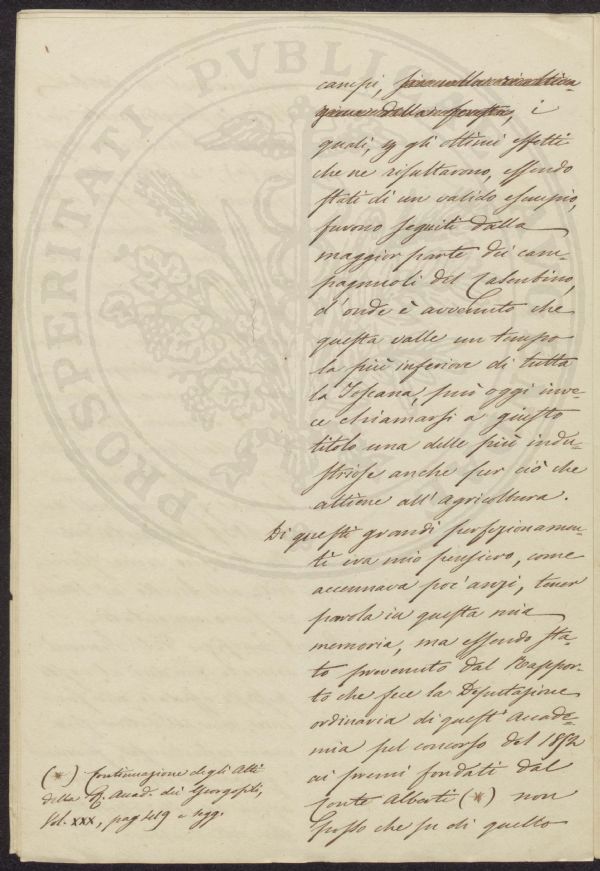 PROSPERITATI PUBLICAE
campi,
i
quali, p gli ottimi effetti
che ne risultarono, essendo
stati di un valido esempio,
furono seguiti dalla
maggior parte dei cam-
pagnuoli del Casentino,
d'onde è avvenuto che
questa valle un tempo
la più inferiore di tutta
la Toscana, può oggi inve-
ce chiamarsi a giusto
titolo una delle più indu-
striose anche per ciò che
attiene all'agricoltura.
Di questi grandi perfezionamen-
ti era mio pensiero, come
accennava poc'anzi, tener
parola in questa mia
memoria, ma essendo sta-
to prevenuto dal Rappor-
to che fece la Deputazione
ordinaria di quest'Accade-
mia pel concorso del 1852
ai premi fondati dal
Conte Alberti (*) non
posso che su di quello
(*) Continuazione degli Atti
della R. Accad. dei Georgofili,
Vol. XXX, pag 419 e segg.